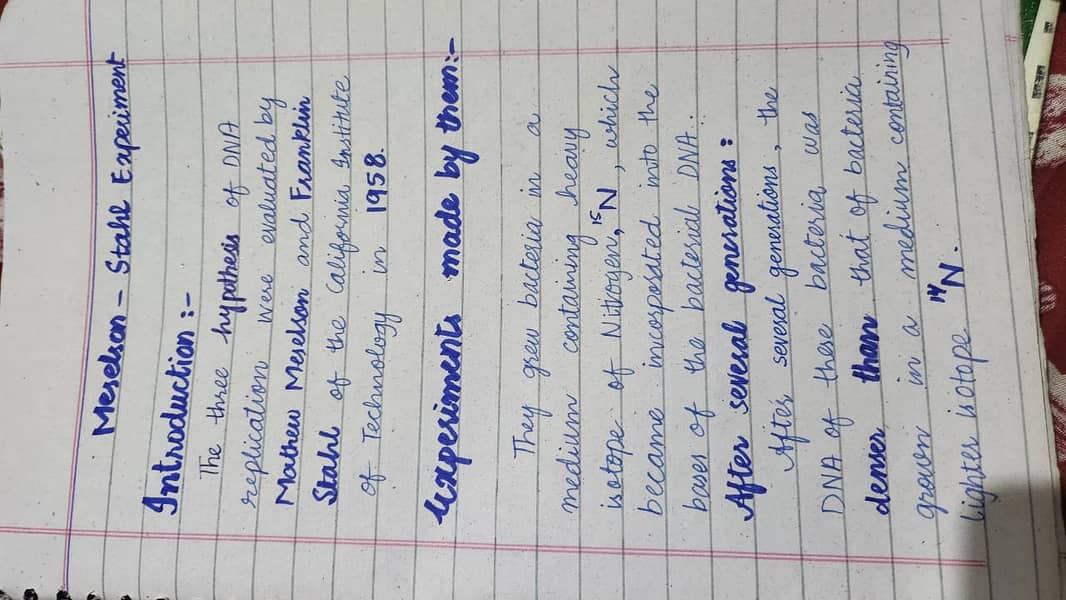 Meselson - Stahl Experiment
Introduction :-
The three hypothesis of DNA
replication were evaluated by
Mathew Meselson and Franklin
Stahl of the California Institute
of Technology in 1958.
Experiments made by them:-
They grew bacteria in a
medium containing heavy
isotope of Nitrogen, ¹⁵N, which
became incorporated into the
bases of the bacterial DNA.
After several generations :
After several generations, the
DNA of these bacteria was
denser than that of bacteria
grown in a medium containing
lighter isotope ¹⁴N.